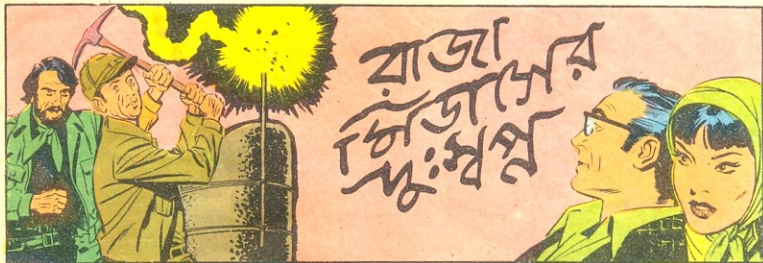 রাজা
মিডাসের
দুঃস্বপ্ন